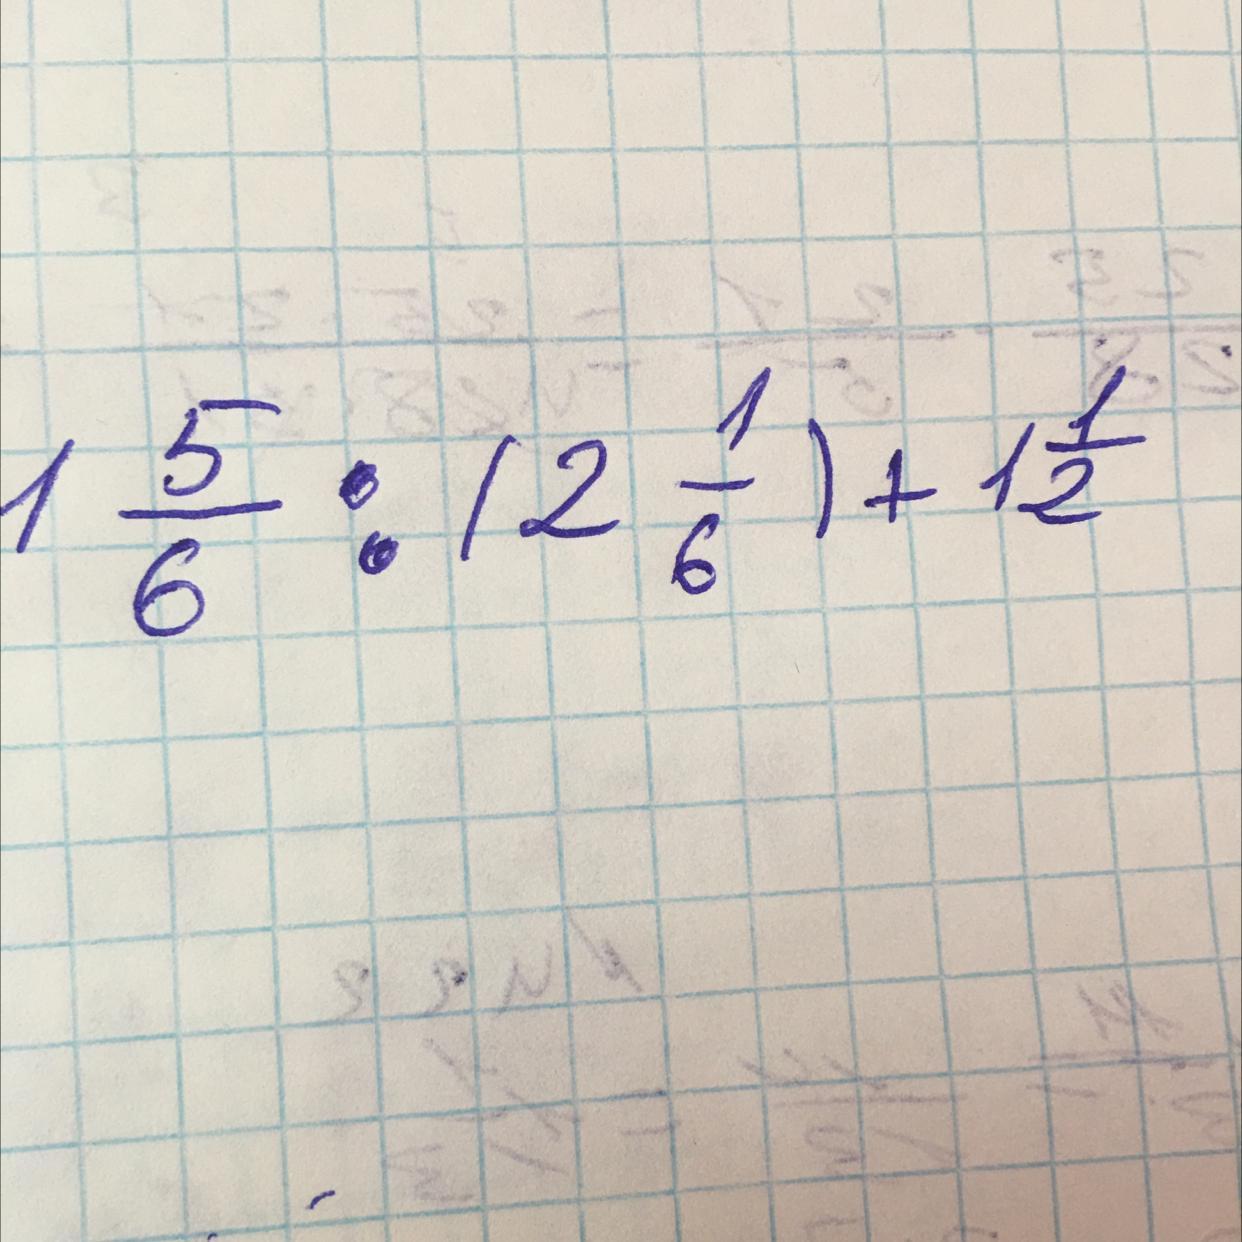 1 5/6 : (2 1/6) + 1 1/2